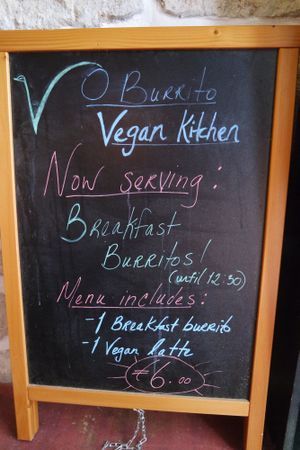 O Burrito
Vegan Kitchen
Now serving:
Breakfast
Burritos!
(until 12:30)
Menu includes:
-1 Breakfast burrito
-1 Vegan latte
€6.00